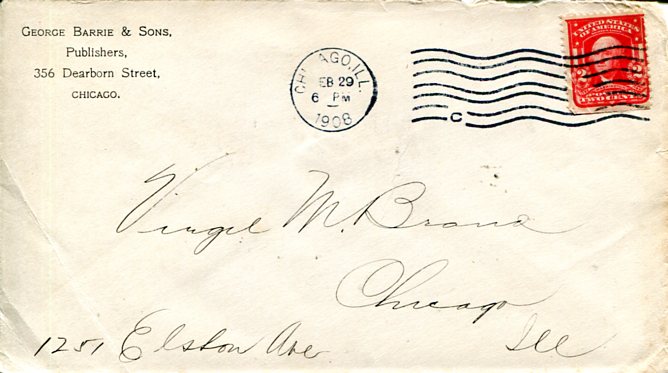 GEORGE BARRIE & SONS,
Publishers,
356 Dearborn Street,
CHICAGO.
CHICAGO, ILL.
FEB 29
6 PM
1908
C
UNITED STATES
OF AMERICA
2 2
TWO CENTS
Virgil M. Brand
Chicago
1251 Elston Ave Ill